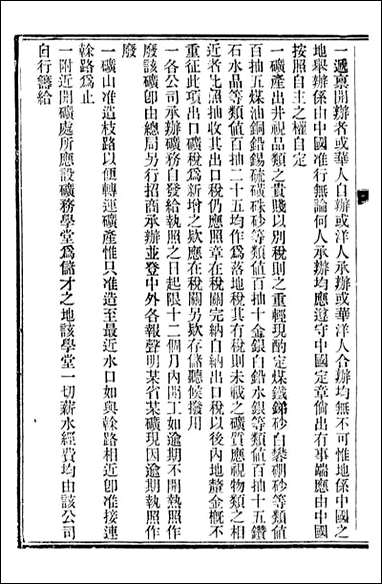 一遞禀開辦者或華人自辦或洋人承辦或華洋人合辦均無不可惟地係中國之
地舉辦係由中國准行無論何人承辦均應遵守中國定章倘出有事端應由中國
按照自主之權自定
一礦產出井視品類之貴賤以別稅則之重輕現酌定煤鐵銻砂白礬硼砂等類值
百抽五煤油銅鉛錫硫磺硃砂等類值百抽十金銀白鉛水銀等類值百抽十五鑽
石水晶等類值百抽二十五均作為落地稅其有稅則未載之礦質應視物類之相
近者比照抽收其出口稅仍應照章在稅關完納自納出口稅以後內地釐金概不
重征此項出口礦稅爲新增之欵應在稅關另欵存儲聽候撥用
一各公司承辦礦務自發給執照之日起限十二個月內開工如逾期不開執照作
廢該礦卽由總局另行招商承辦並登中外各報聲明某省某礦現因逾期執照作
廢
一礦山准造枝路以便轉運礦產惟只准造至最近水口如與榦路相近卽准接連
榦路爲止
一附近開礦處所應設礦務學堂爲儲才之地該學堂一切薪水經費均由該公司
自行籌給